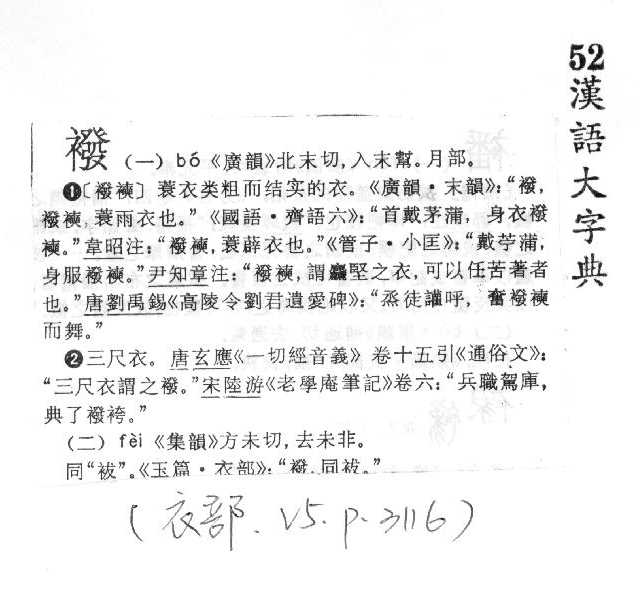 52漢語大字典
襏 (一) bó 《廣韻》北末切,入末幫。月部。
❶〔襏襫〕蓑衣类粗而结实的衣。《廣韻·末韻》:“襏,
襏襫,蓑雨衣也。”《國語·齊語六》:“首戴茅蒲,身衣襏
襫。”韋昭注:“襏襫,蓑薜衣也。”《管子·小匡》:“戴苧蒲,
身服襏襫。”尹知章注:“襏襫,謂麤堅之衣,可以任苦著者
也。”唐劉禹錫《高陵令劉君遺愛碑》:“烝徒讙呼,奮襏襫
而舞。”
❷三尺衣。唐玄應《一切經音義》卷十五引《通俗文》:
“三尺衣謂之襏。”宋陸游《老學庵筆記》卷六:“兵職駕庫,
典了襏袴。”
(二) fèi 《集韻》方未切,去未非。
同“袚”。《玉篇·衣部》:“襏,同袚。”
(衣部、V5.p.3116)